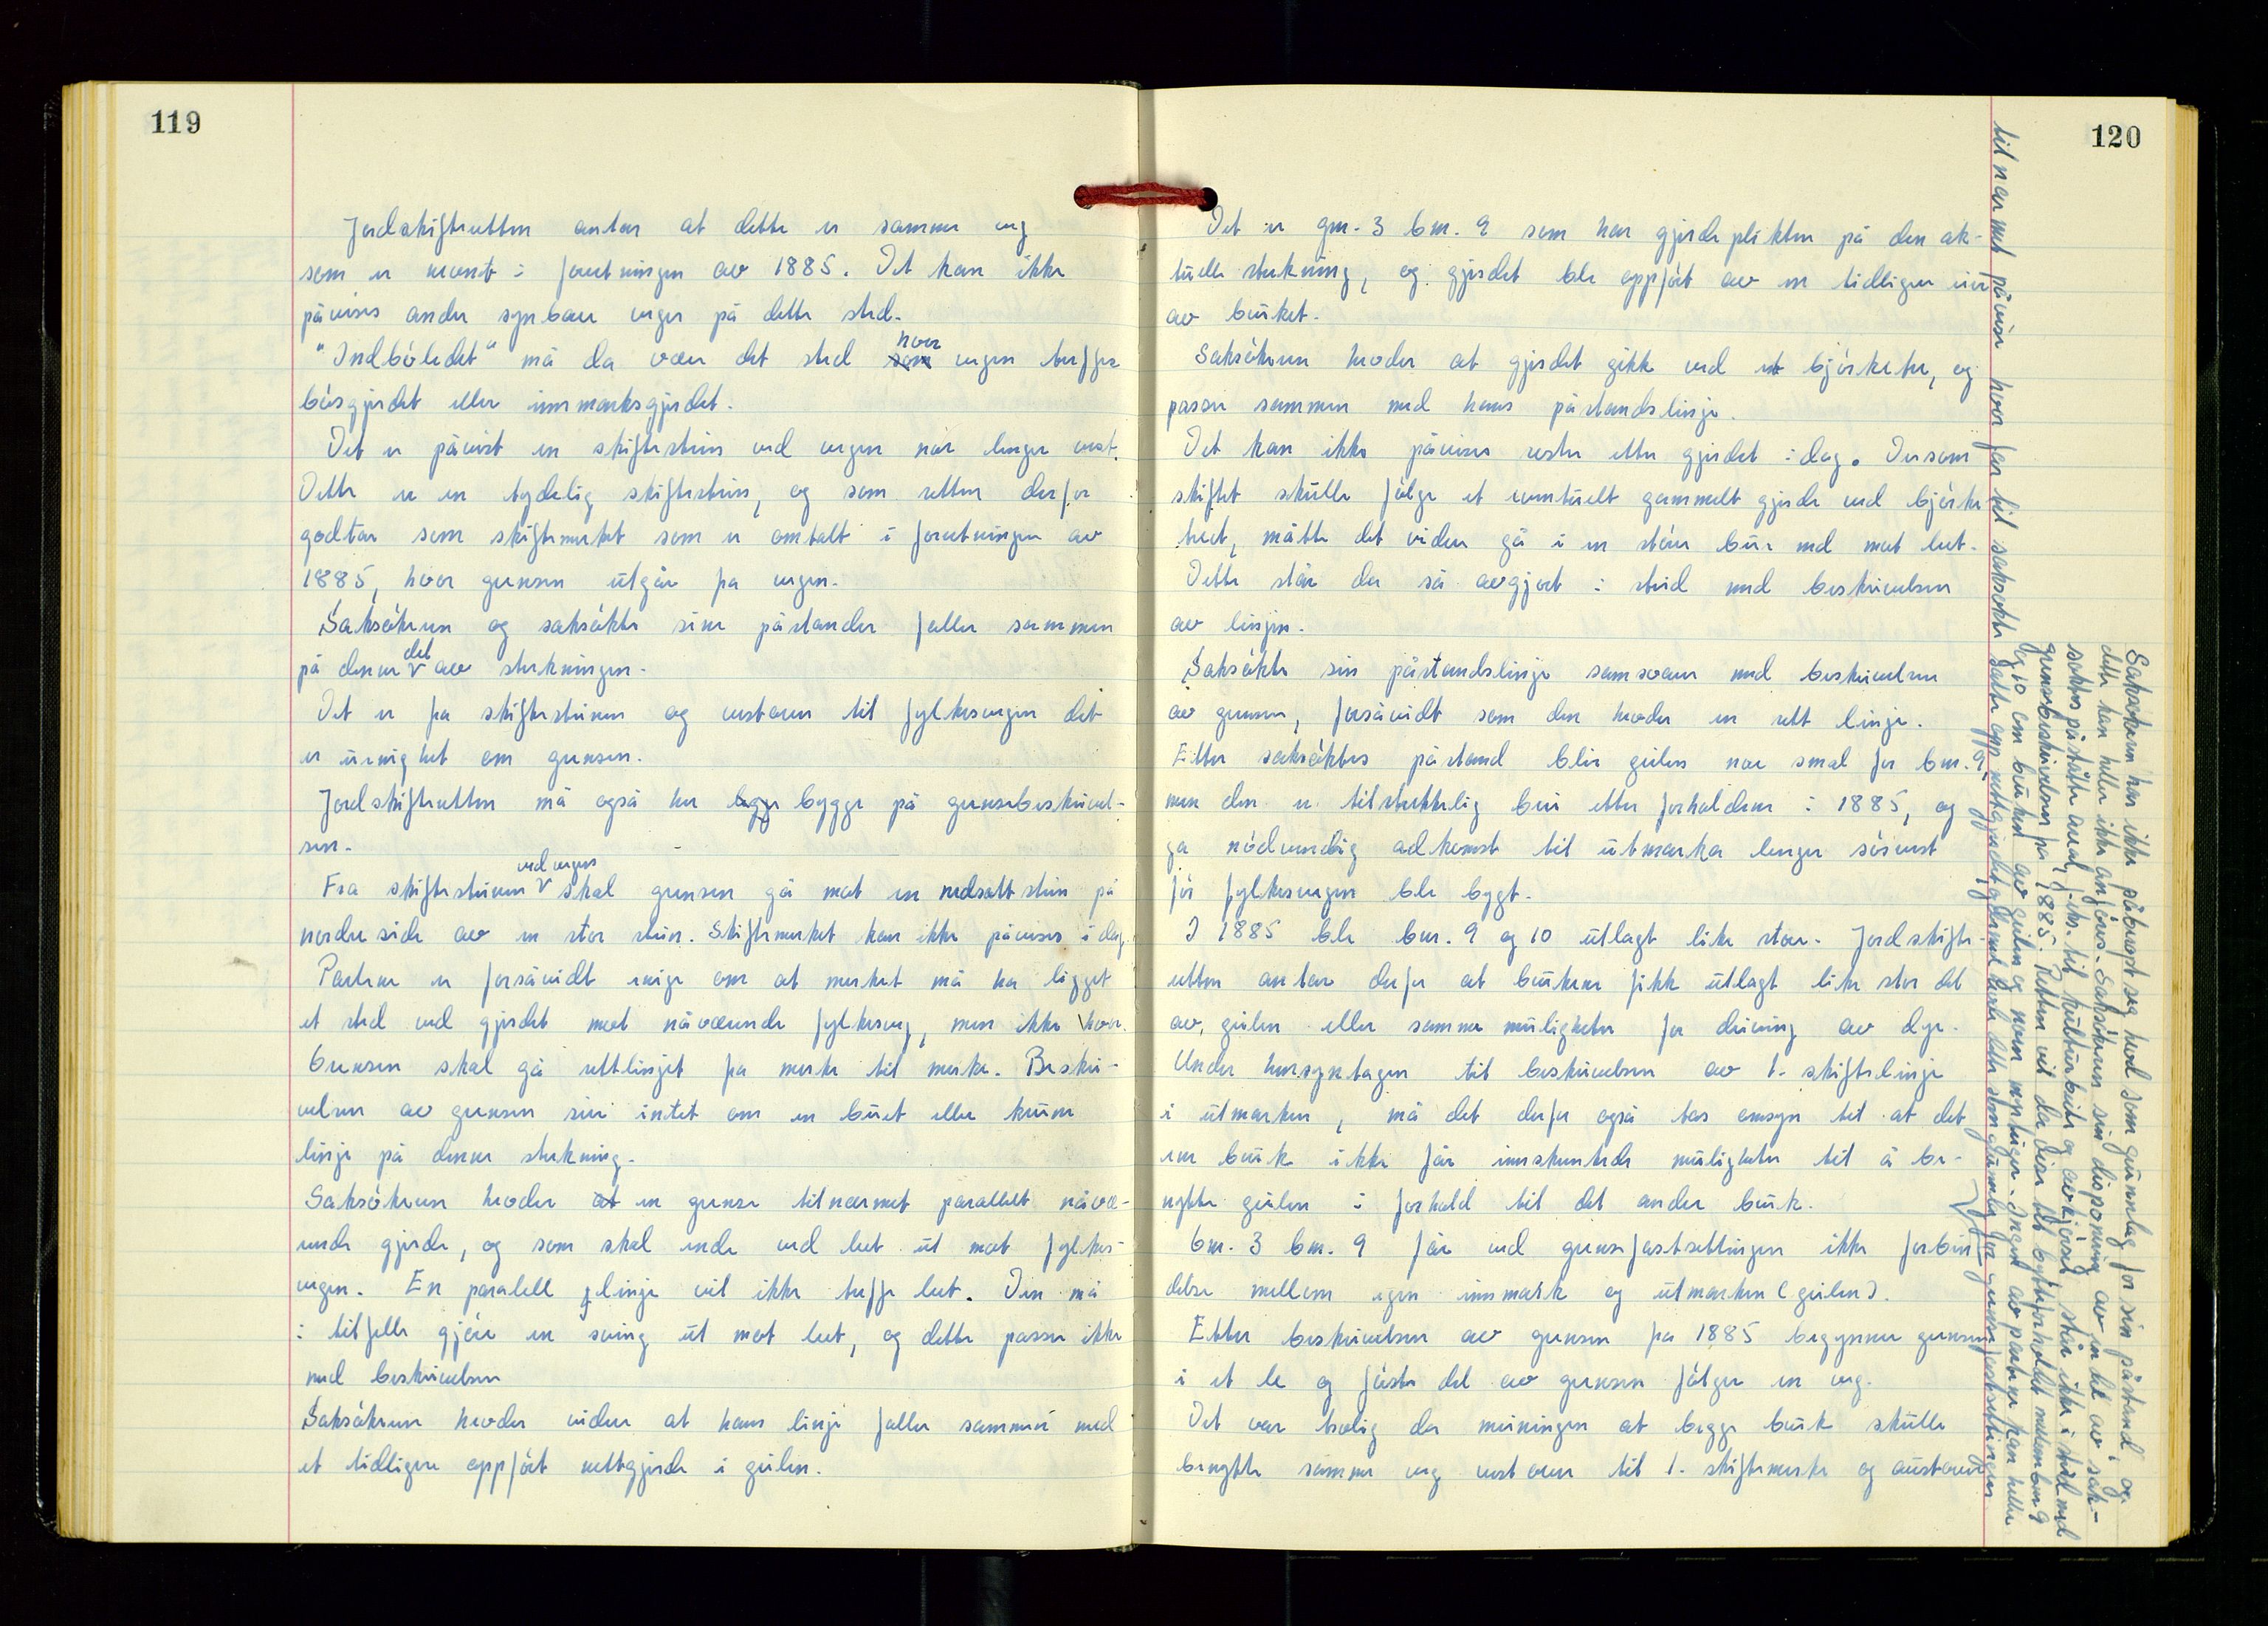 119
Jordskifteretten antar at dette er samme veg
som er nevnt i forretningen av 1885. Det kan ikke
påvises andre synbare veger på dette sted.
"Indböledet" må da være det sted som hvor vegen treffer
bøsgjerdet eller innmarksgjerdet.
Det er påvist en skiftestein ved vegen noe lenger vest.
Dette er en tydelig skiftestein, og som retten derfor
godtar som skiftemerket som er omtalt i forretningen av
1885, hvor grensen utgår fra vegen.
Saksøkeren og saksøkte sine påstander faller sammen
på denne del av strekningen.
Det er fra skiftesteinen og vestover til fylkesvegen det
er uenighet om grensen.
Jordskifteretten må også her bygge bygge på grensebeskrivel-
sen.
Fra skiftesteinen ved vegen skal grensen gå mot en nedsatt stein på
nordre side av en stor stein. Skiftemerket kan ikke påvises i dag.
Partene er forsåvidt enige om at merket må ha ligget
et sted ved gjerdet mot nåværende fylkesveg, men ikke hvor.
Grensen skal gå rettlinjet fra merke til merke. Beskri-
velsen av grensen sier intet om en buet eller krum
linje på denne strekning.
Saksøkeren hevder at en grense tilnærmet parallelt nåvæ-
rende gjerde, og som skal ende ved leet ut mot fylkes-
vegen. En paralell linje vil ikke treffe leet. Den må
i tilfelle gjøre en sving ut mot leet, og dette passer ikke
med beskrivelsen
Saksøkeren hevder videre at hans linje faller sammen med
et tidligere oppført nettgjerde i geilen.
120
Det er gnr. 3 bnr. 9 som har gjerdeplikten på den ak-
tuelle strekning, og gjerdet ble oppført av en tidligere eier
av bruket.
Saksøkeren hevder at gjerdet gikk ved et bjørketre, og
passer sammen med hans påstandslinje.
Det kan ikke påvises rester etter gjerdet i dag. Dersom
skiftet skulle følge et eventuelt gammelt gjerde ved bjørke-
treet, måtte det videre gå i en større bue ned mot leet.
Dette står da så avgjort i strid med beskrivelsen
av linjen.
Saksøkte sin påstandslinje samsvarer med beskrivelsen
av grensen, forsåvidt som den hevder en rett linje.
Etter saksøktes påstand blir geilen noe smal for bnr. 9,
men den er tilstrekkelig brei etter forholdene i 1885, og
ga nødvendig adkomst til utmarka lenger sørvest
før fylkesvegen ble bygt.
I 1885 ble bnr. 9 og 10 utlagt like store. Jordskifte-
retten antar derfor at brukene fikk utlagt like stor del
av geilen eller samme muligheter for driving av dyr.
Under hensyntagen til beskrivelsen av 1. skiftelinje
i utmarken, må det derfor også tas omsyn til at det
ene bruk ikke får innskrenkede muligheter til å be-
nytte geilen i forhold til det andre bruk.
Gnr. 3 bnr. 9 får ved grensefastsettingen ikke forbin-
delse mellom egen innmark og utmarken (geilen).
Etter beskrivelsen av grensen fra 1885 begynner grensen
i et le og første del av grensen følger en veg.
Det var trolig da meiningen at begge bruk skulle
benytte samme veg vestover til 1. skiftemerke og austover
til nærmest påviser hvor før til saksøkte satte opp nettgjerdet, og dermed har dette som grunnlag for grensefastsettingen
Saksøkeren har ikke påberopt seg hevd som grunnlag for sin påstand, og
dette kan heller ikke anføres. Saksøkeren sin disponering av en del av sak-
søktes påståtte areal, f.eks. til kulturbeite og avkjørsel, står ikke i strid med
grensebeskrivelsen fra 1885. Retten vil da vise til bytteforholdet mellom bnr. 9
og 10 om bruken av geilen og noen remisser. Ingen av partene kan heller